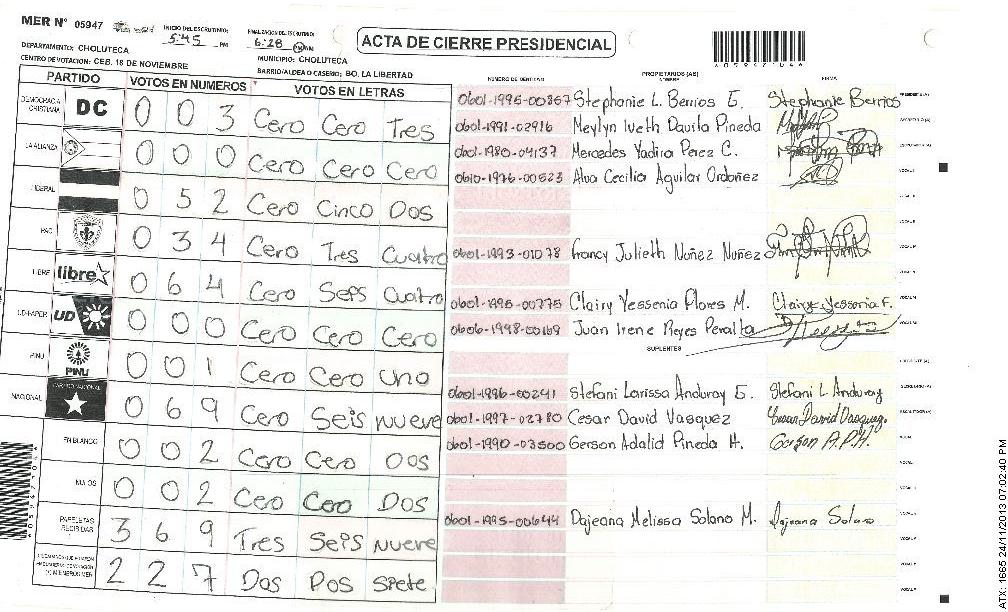 MER N° 05947
INICIO DEL ESCRUTINIO: 5:45 PM
FINALIZACION DEL ESCRUTINIO: 6:28 PM AM
ACTA DE CIERRE PRESIDENCIAL
DEPARTAMENTO: CHOLUTECA
MUNICIPIO: CHOLUTECA
CENTRO DE VOTACION: CEB. 18 DE NOVIEMBRE
BARRIO/ALDEA O CASERIO: BO. LA LIBERTAD
PARTIDO VOTOS EN NUMEROS VOTOS EN LETRAS
DEMOCRACIA CRISTIANA DC 0 0 3 Cero Cero Tres
LA ALIANZA 0 0 0 Cero Cero Cero
LIBERAL 0 5 2 Cero Cinco Dos
PAC 0 3 4 Cero Tres Cuatro
LIBRE libre 0 6 4 Cero Seis Cuatro
UD-FAPER UD 0 0 0 Cero Cero Cero
PINU PINU 0 0 1 Cero Cero Uno
NACIONAL PARTIDO NACIONAL 0 6 9 Cero Seis Nueve
EN BLANCO 0 0 2 Cero Cero Dos
NULOS 0 0 2 Cero Cero Dos
PAPELETAS RECIBIDAS 3 6 9 Tres Seis Nueve
2 2 7 Dos Dos Siete
PROPIETARIOS (AS)
NUMERO DE IDENTIDAD NOMBRE FIRMA
0601-1995-00857 Stephanie L. Berrios E. Stephanie Berrios PRESIDENTE (A)
0601-1991-02916 Meylyn Iveth Davila Pineda SECRETARIO (A)
0601-1980-04137 Mercedes Yadira Perez C. ESCRUTADOR (A)
0610-1976-00523 Alva Cecilia Aguilar Ordoñez VOCAL I
VOCAL II
0601-1993-01078 Francy Julieth Nuñez Nuñez
0601-1995-00775 Clairy Yessenia Flores M. Clairy Yessenia F.
0606-1998-00169 Juan Irene Reyes Peralta
SUPLENTES
0601-1996-00291 Stefani Larissa Anduray E. Stefani L Anduray SECRETARIO (A)
0601-1997-02780 Cesar David Vasquez Cesar David Vasquez. ESCRUTADOR (A)
0601-1990-03500 Gerson Adalid Pineda H. Gerson A.P.H.
0601-1995-00644 Dajeana Melissa Solano M. Dajeana Solano
ATX: 1665 24/11/2013 07:02:40 PM